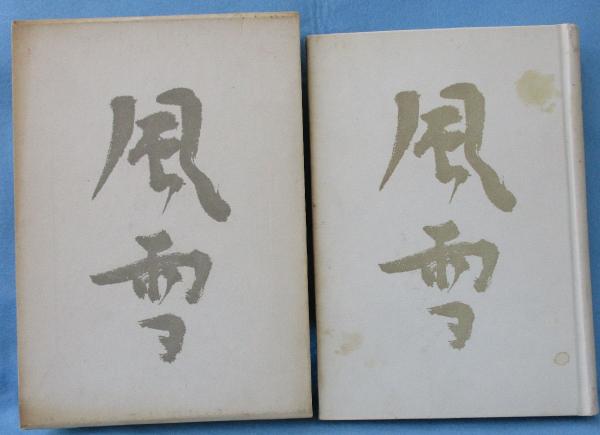 風雪
風雪